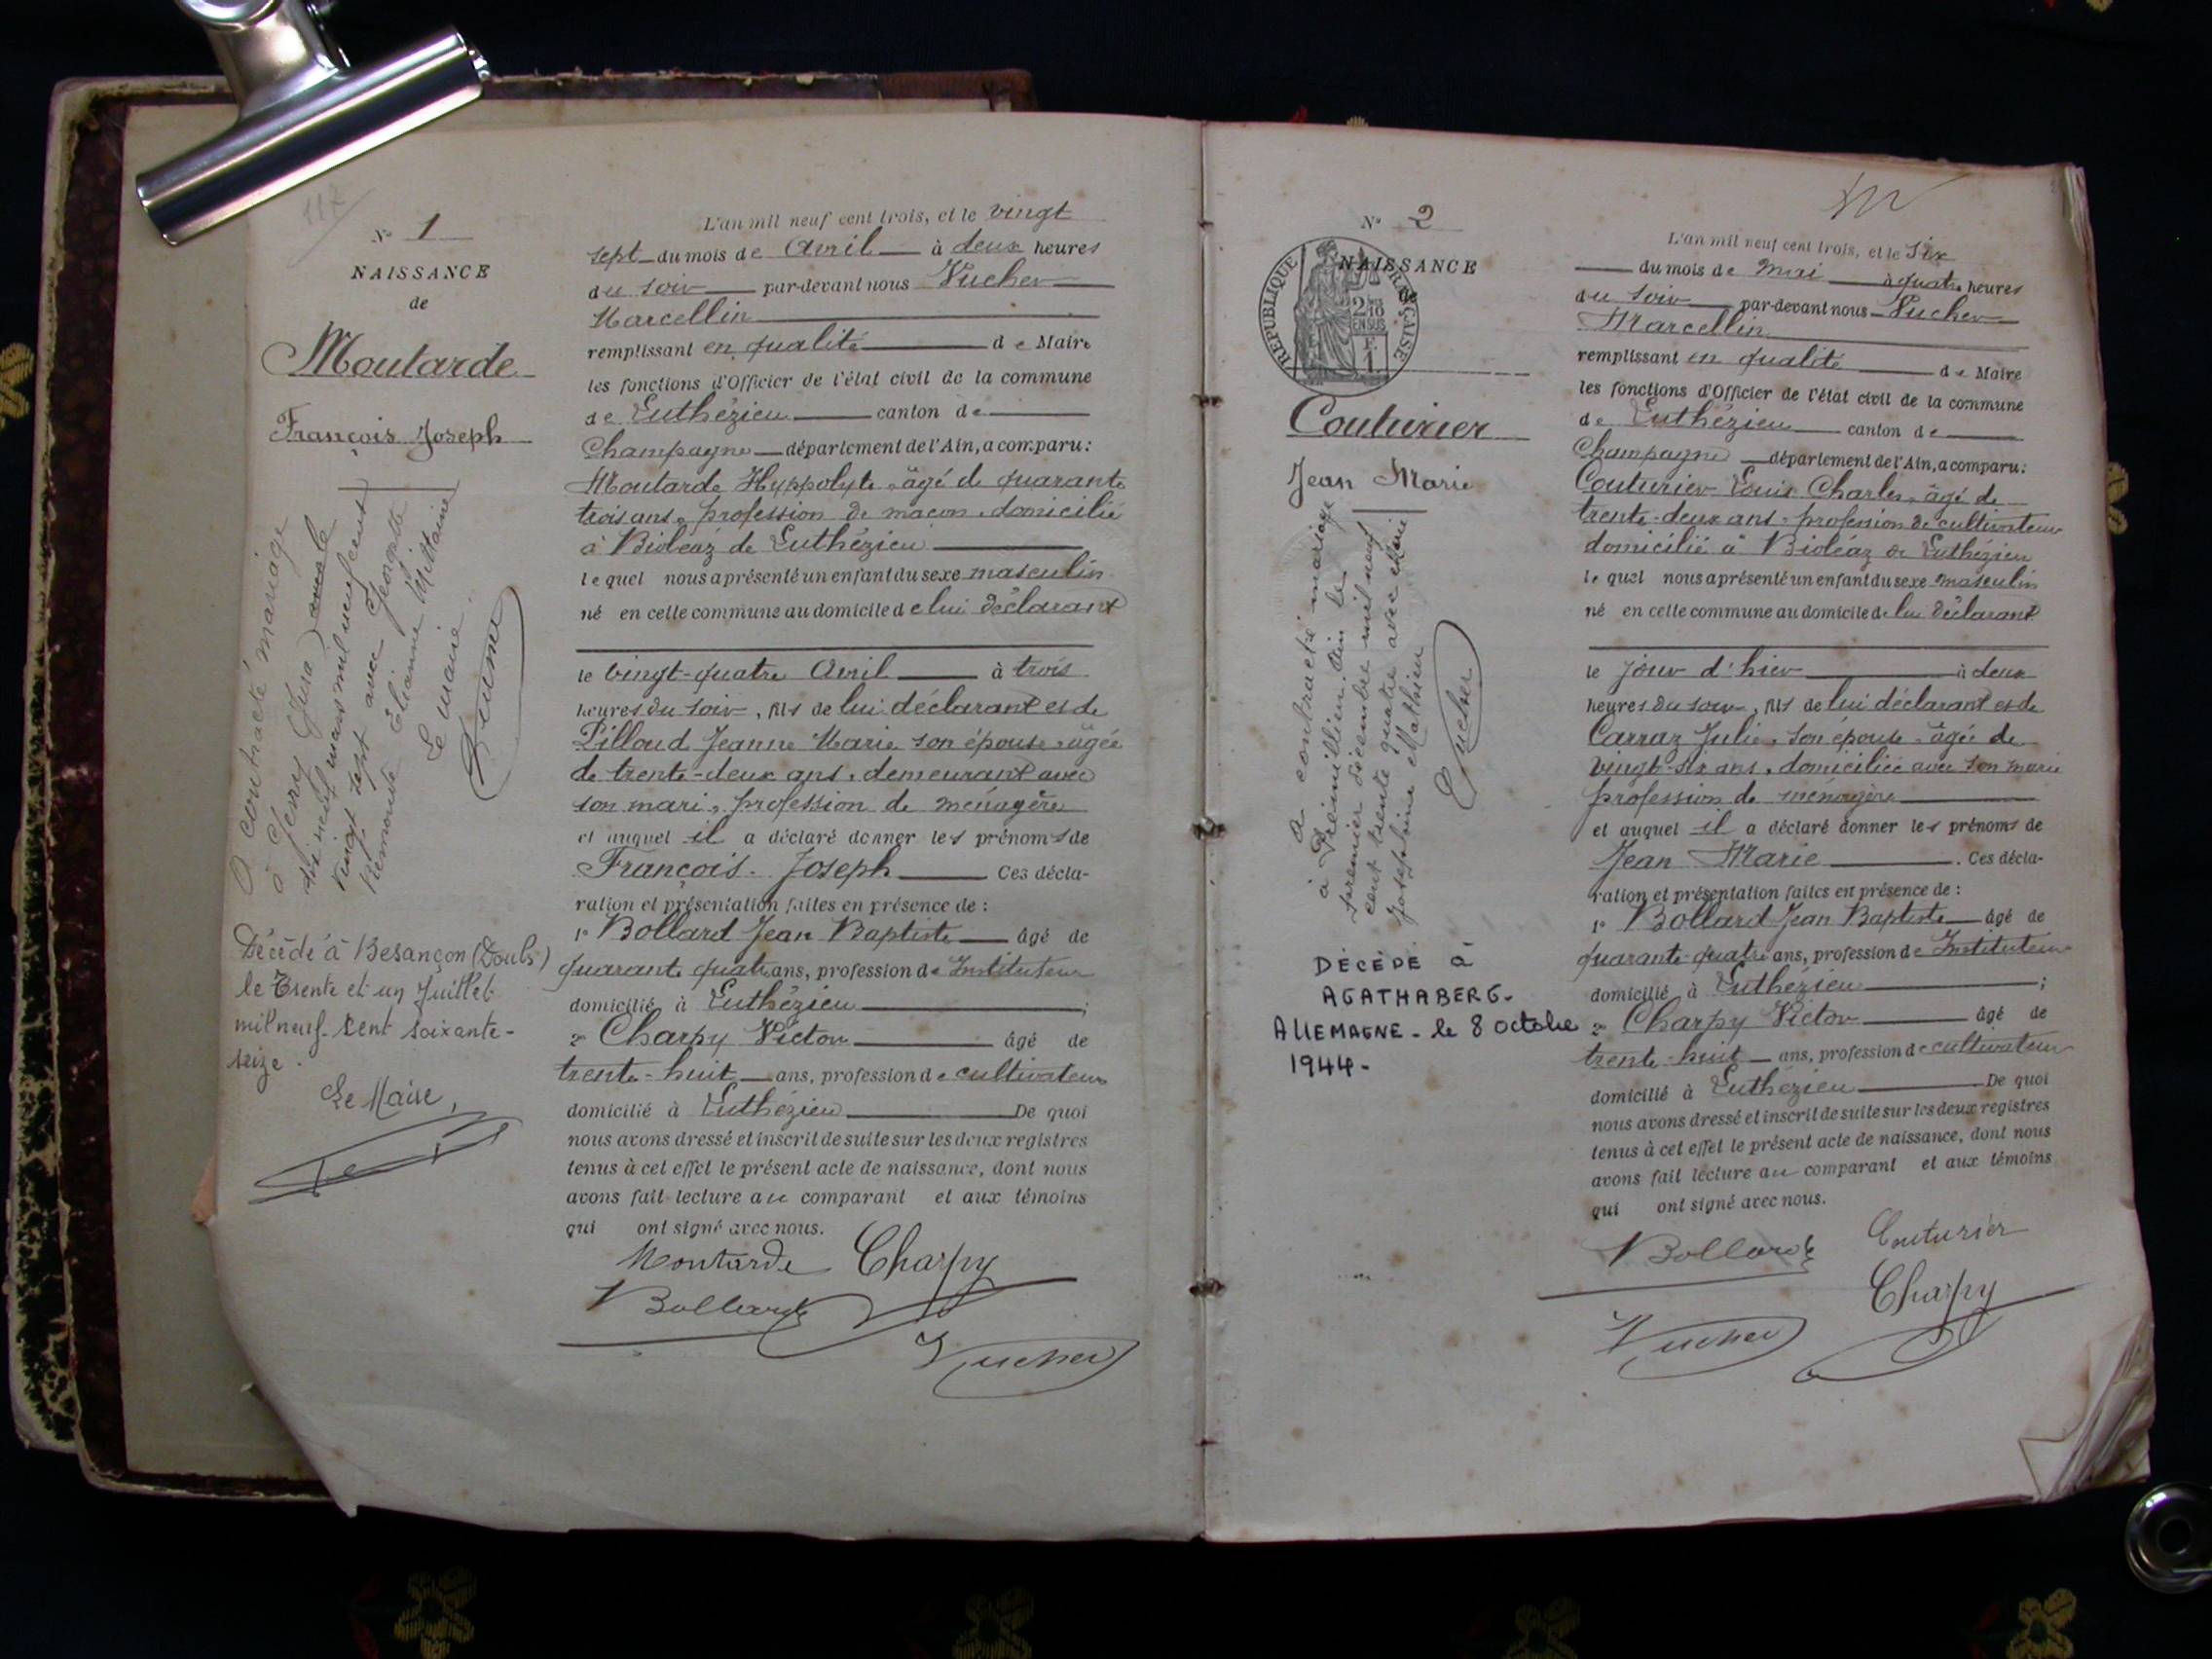 N° 1
NAISSANCE
de
Moutarde
François Joseph
A contracté mariage
à (Jura) avec le
dix neuf mars mil neuf cent
vingt sept avec Georgette
Raymonde Elianne Mettaine
Le maire
Décédé à Besançon (Doubs)
le Trente et un Juillet
mil neuf-Cent soixante-
seize.
Le Maire,
L'an mil neuf cent trois, et le vingt
sept du mois de Avril à deux heures
du soir par-devant nous Vucher
Marcellin
remplissant en qualité de Maire
les fonctions d'Officier de l'état civil de la commune
de Luthézieu canton de
Champagne département de l'Ain, a comparu:
Moutarde Hyppolyte âgé de quarante
trois ans, profession de maçon, domicilié
à Bioléaz de Luthézieu
lequel nous a présenté un enfant du sexe masculin
né en cette commune au domicile de lui déclarant
le vingt-quatre Avril à trois
heures du soir, fils de lui déclarant et de
Pilloud Jeanne Marie son épouse âgée
de trente-deux ans, demeurant avec
son mari, profession de ménagère
et auquel il a déclaré donner les prénoms de
François Joseph Ces décla-
ration et présentation faites en présence de :
1° Bollard Jean Baptiste âgé de
quarante quatre ans, profession de Instituteur
domicilié à Luthézieu ;
2° Charpy Victor âgé de
trente-huit ans, profession de cultivateur
domicilié à Luthézieu De quoi
nous avons dressé et inscrit de suite sur les deux registres
tenus à cet effet le présent acte de naissance, dont nous
avons fait lecture au comparant et aux témoins
qui ont signé avec nous.
Moutarde Charpy
Bollard
Vucher
N° 2
NAISSANCE
de
REPUBLIQUE FRANÇAISE
2/10
EN SUS
Couturier
Jean Marie
A contracté mariage
à Prémillieu Ain le
premier décembre mil neuf
cent trente quatre avec Marie
Joséphine Mathieu
Vucher
DÉCÉDÉ à
AGATHABERG-
ALLEMAGNE - le 8 octobre
1944-
L'an mil neuf cent trois, et le six
du mois de mai à quatre heures
du soir par-devant nous Vucher
Marcellin
remplissant en qualité de Maire
les fonctions d'Officier de l'état civil de la commune
de Luthézieu canton de
Champagne département de l'Ain, a comparu:
Couturier Louis Charles, âgé de
trente-deux ans, profession de cultivateur
domicilié à Bioléaz de Luthézieu
lequel nous a présenté un enfant du sexe masculin
né en cette commune au domicile de lui déclarant
le jour d'hier à deux
heures du soir, fils de lui déclarant et de
Carraz Julie, son épouse âgée de
vingt-six ans, domiciliée avec son mari
profession de ménagère
et auquel il a déclaré donner les prénoms de
Jean Marie . Ces décla-
ration et présentation faites en présence de :
1° Bollard Jean Baptiste âgé de
quarante-quatre ans, profession de Instituteur
domicilié à Luthézieu ;
2° Charpy Victor âgé de
trente-huit ans, profession de cultivateur
domicilié à Luthézieu De quoi
nous avons dressé et inscrit de suite sur les deux registres
tenus à cet effet le présent acte de naissance, dont nous
avons fait lecture au comparant et aux témoins
qui ont signé avec nous.
Bollard Couturier
Charpy
Vucher